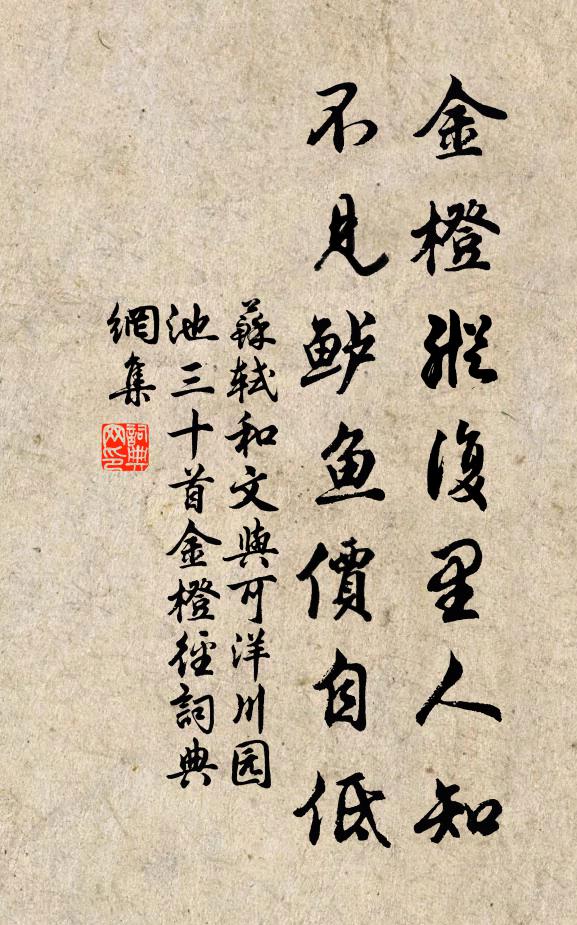 金橙縱復里人知
不見鲈鱼價自低
蘇軾和文與可洋川园
池三十首金橙徑詞典
網集
詞典
网印